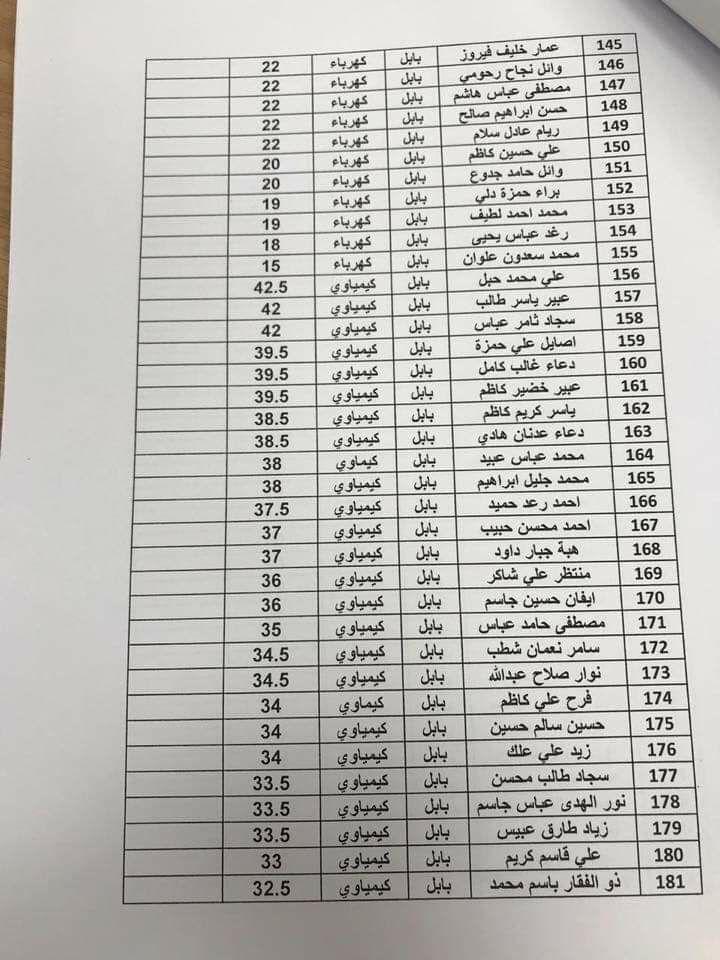 145 عمار خليف فيروز بابل كهرباء 22
146 وائل نجاح رحومي بابل كهرباء 22
147 مصطفى عباس هاشم بابل كهرباء 22
148 حسن ابراهيم صالح بابل كهرباء 22
149 ريام عادل سلام بابل كهرباء 22
150 علي حسين كاظم بابل كهرباء 20
151 وائل حامد جدوع بابل كهرباء 20
152 براء حمزة دلي بابل كهرباء 19
153 محمد احمد لطيف بابل كهرباء 19
154 رغد عباس يحيى بابل كهرباء 18
155 محمد سعدون علوان بابل كهرباء 15
156 علي محمد حبل بابل كيمياوي 42.5
157 عبير ياسر طالب بابل كيمياوي 42
158 سجاد ثامر عباس بابل كيمياوي 42
159 اصايل علي حمزة بابل كيمياوي 39.5
160 دعاء غالب كامل بابل كيمياوي 39.5
161 عبير خضير كاظم بابل كيمياوي 39.5
162 ياسر كريم كاظم بابل كيمياوي 38.5
163 دعاء عدنان هادي بابل كيمياوي 38.5
164 محمد عباس عبيد بابل كيماوي 38
165 محمد جليل ابراهيم بابل كيمياوي 38
166 احمد رعد حميد بابل كيمياوي 37.5
167 احمد محسن حبيب بابل كيمياوي 37
168 هبة جبار داود بابل كيمياوي 37
169 منتظر علي شاكر بابل كيمياوي 36
170 ايفان حسين جاسم بابل كيمياوي 36
171 مصطفى حامد عباس بابل كيمياوي 35
172 سامر نعمان شطب بابل كيمياوي 34.5
173 نوار صلاح عبدالله بابل كيمياوي 34.5
174 فرح علي كاظم بابل كيماوي 34
175 حسين سالم حسين بابل كيمياوي 34
176 زيد علي علك بابل كيمياوي 34
177 سجاد طالب محسن بابل كيمياوي 33.5
178 نور الهدى عباس جاسم بابل كيمياوي 33.5
179 زياد طارق عبيس بابل كيمياوي 33.5
180 علي قاسم كريم بابل كيمياوي 33
181 ذو الفقار باسم محمد بابل كيمياوي 32.5